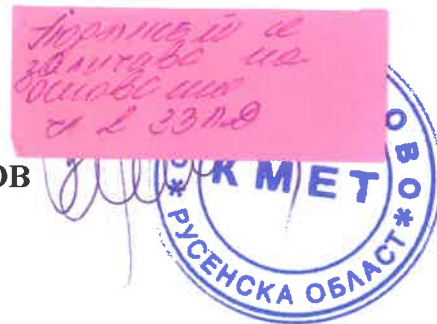 Подписът се
заличава на
основание
чл 2 ЗЗЛД
ОВ
КМЕТ
ОВО * РУСЕНСКА ОБЛАСТ *